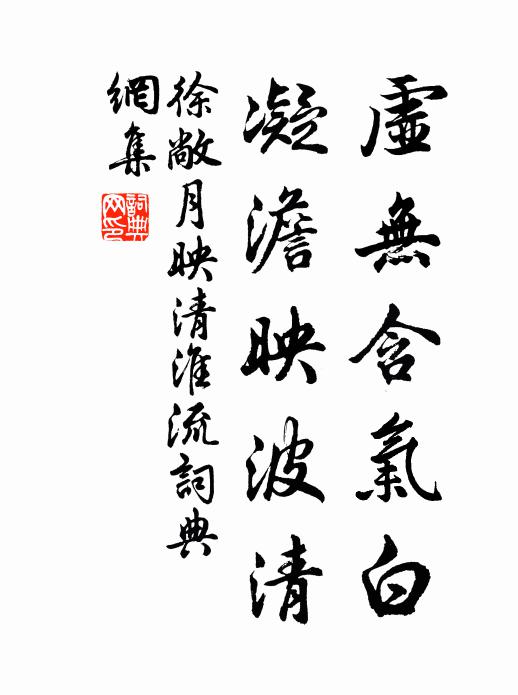 虛無含氣白
凝澹映波清
徐敞月映清淮流詞典
網集
詞典
网印